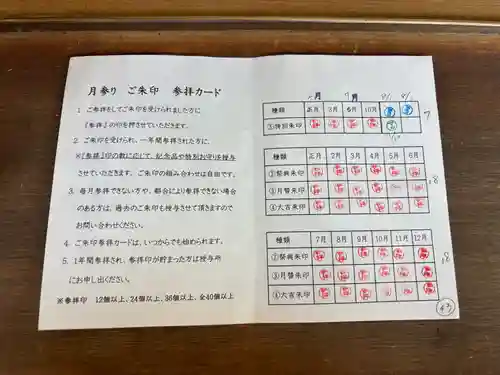 月参り ご朱印 参拝カード
1. ご参拝をしてご朱印を受けられました方に
『参拝』の印を押させていただきます。
2. ご朱印を受けられ、一年間参拝された方に、
※『参拝』印の数に応じて、記念品や特別お守を授与
させていただきます。ご朱印の組み合わせは自由です。
3. 毎月参拝できない方や、都合により参拝できない場合
のある方は、過去のご朱印も授与させて頂きますので
お問い合わせください。
4. ご朱印参拝カードは、いつからでも始められます。
5. 1年間参拝され、参拝印が貯まった方は授与所
にお申し出ください。
※参拝印 12個以上、24個以上、36個以上、全40個以上
7月
種類 正月 3月 6月 10月
①特別朱印
7
種類 正月 2月 3月 4月 5月 6月
②祭典朱印
③月替朱印
④大吉朱印
18
種類 7月 8月 9月 10月 11月 12月
②祭典朱印
③月替朱印
④大吉朱印
18
43